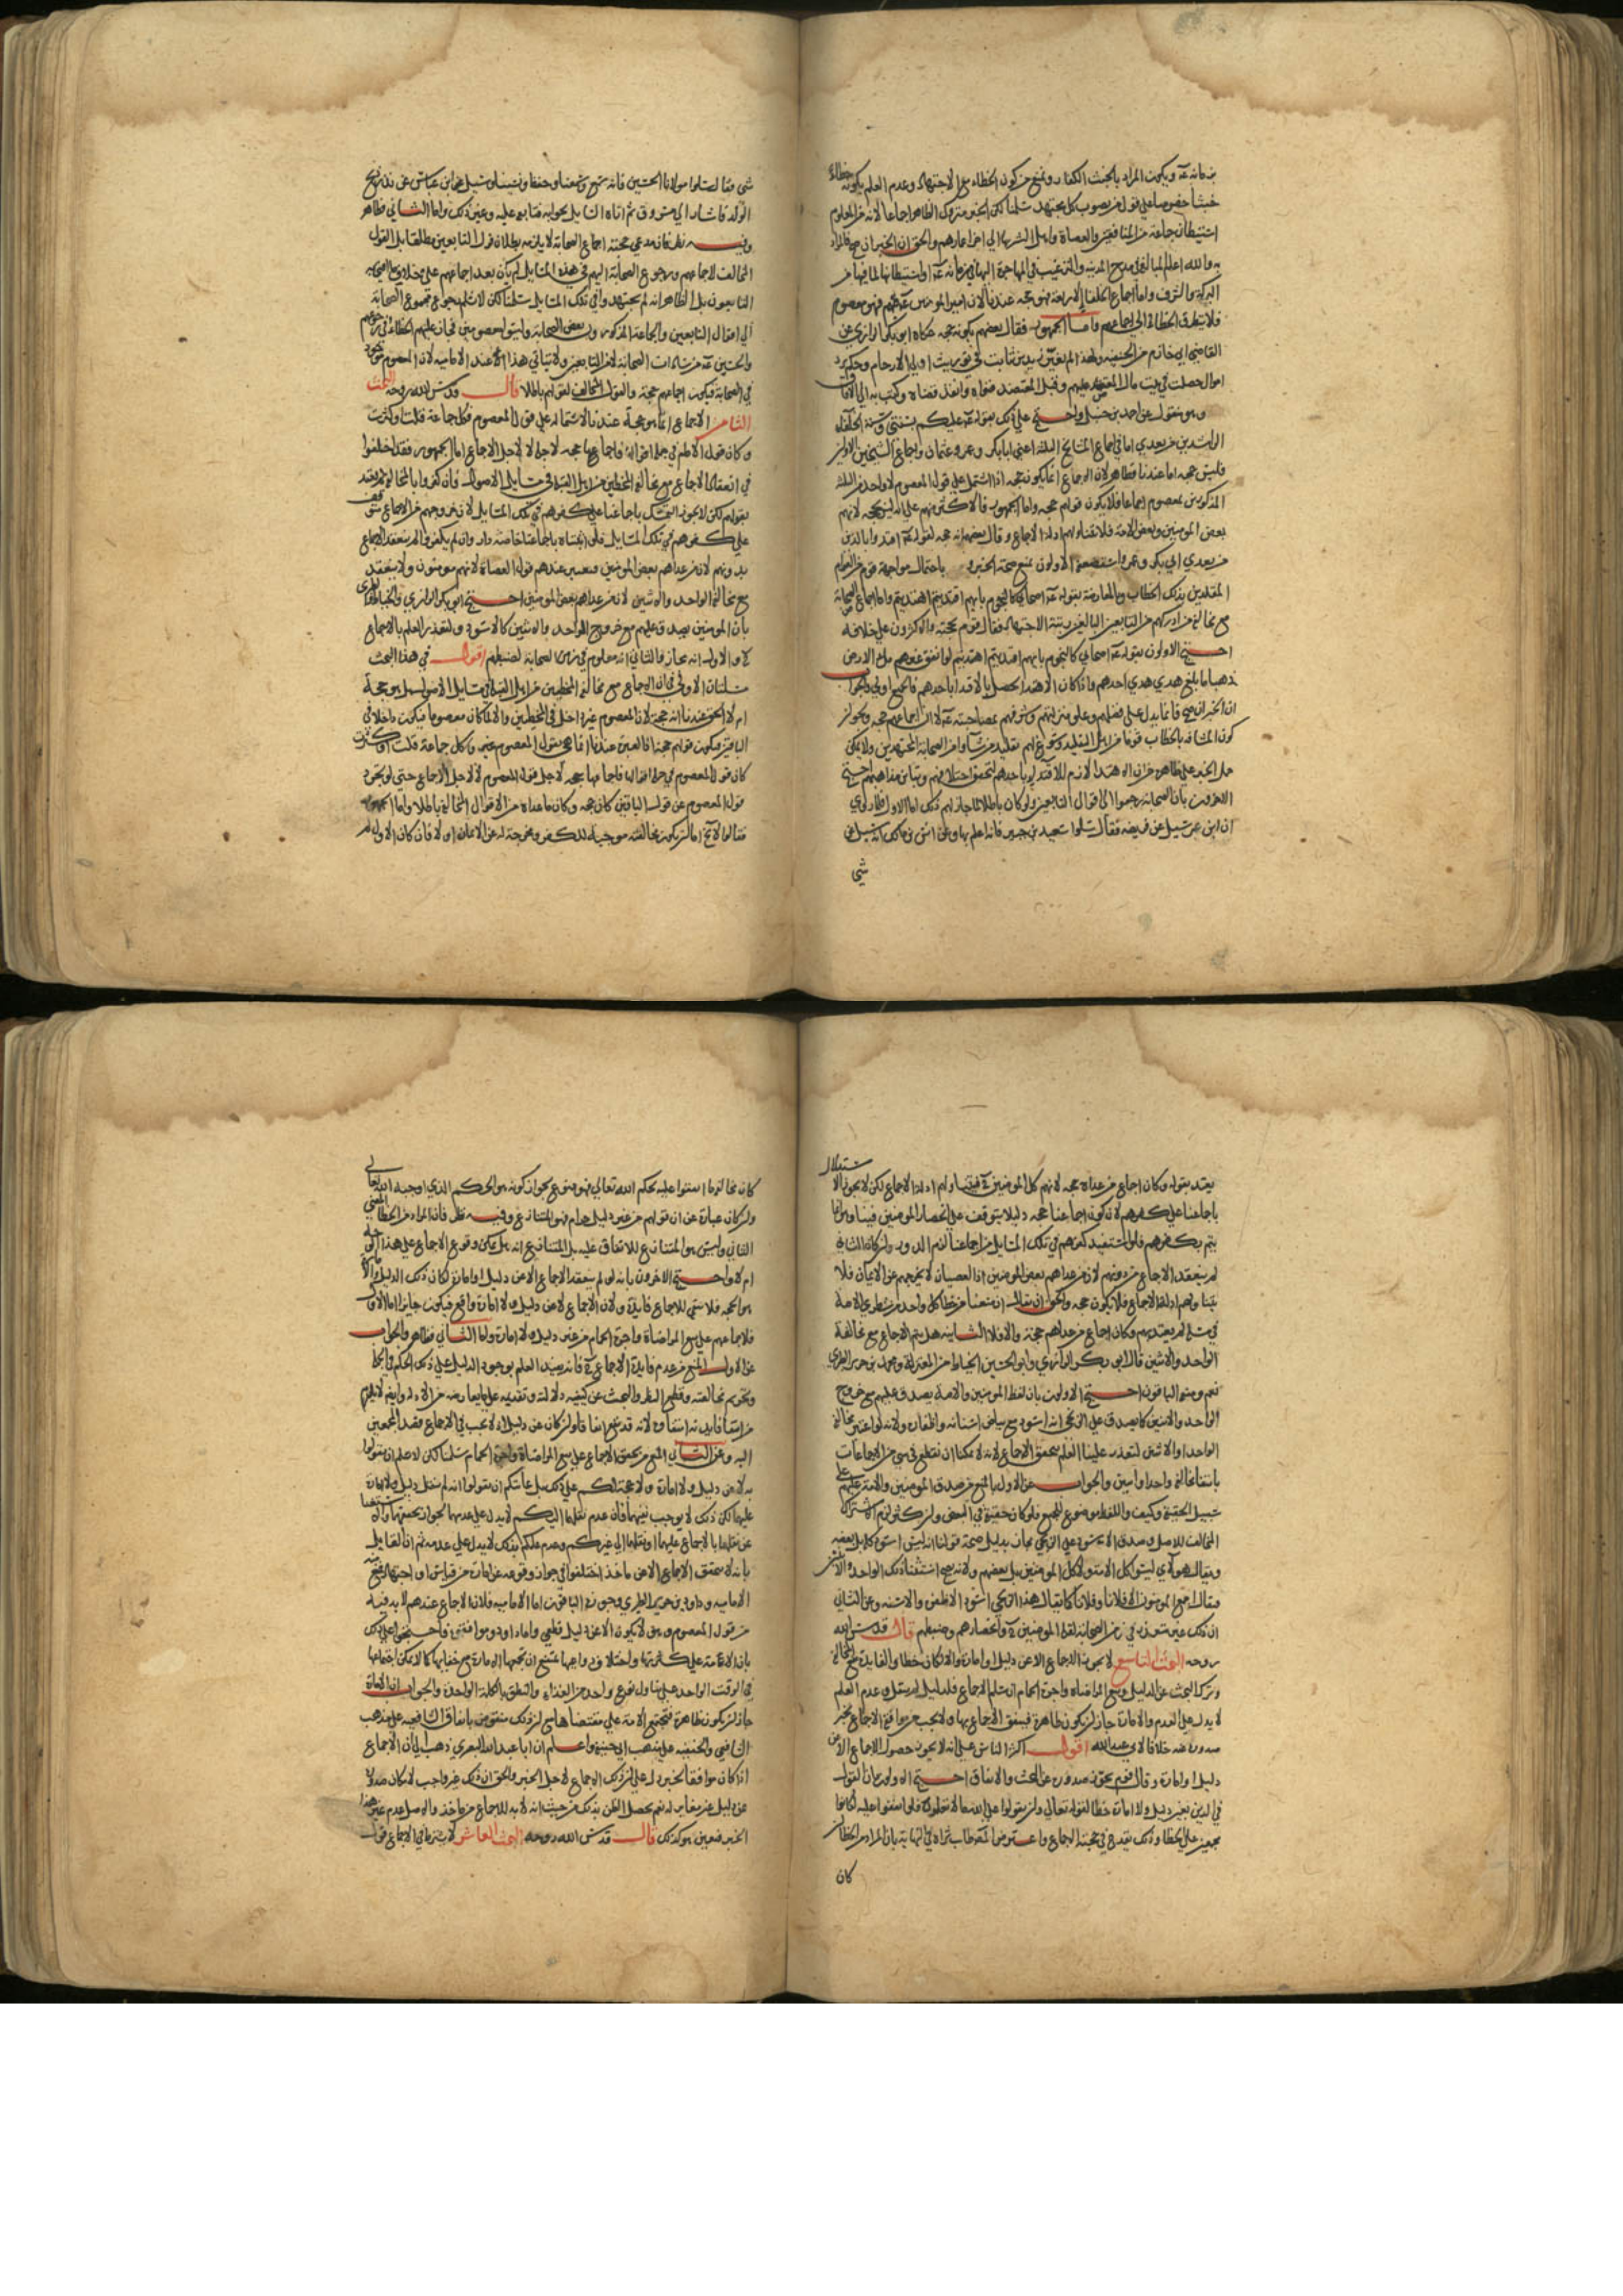 خبثا خصوصا على قول من يصوب كل مجتهد سلمنا لكن الخبر متروك الظاهر اجماعا لانه من المعلوم
استيطان جماعة من المنافقين والعصاة واهل الشر بها الى اخر اعمارهم والحق ان الخبر ان صح فالمراد
به والله اعلم المبالغة في مدح المدينة والترغيب في المهاجرة اليها في زمانه
البركة والشرف واما اجماع الخلفاء الاربعة فهو حجة عندنا لان امير المؤمنين
فلا يتطرق الخطا الى اجماعهم واما الجمهور فقال بعضهم بكونه حجة حكاه ابو بكر الرازي عن
القاضي ابي خازم من الحنفية ولهذا لم يعتبر زيد بن ثابت في توريث اولي الارحام وحكم برد
اموال حصلت في بيت مال المعتضد عليهم وقبل المعتضد فتواه وانفذ قضاه وكتب به الى الافاق
وهو منقول عن احمد بن حنبل واحتج على ذلك بقوله عليكم بسنتي وسنة الخلفاء
الراشدين من بعدي اما في اجماع المشايخ الثلثة اعني ابا بكر وعمر وعثمان واجماع الشيخين الاولين
فليس حجة اما عندنا فظاهر لان الاجماع انما يكون حجة اذا اشتمل على قول المعصوم ولا واحد من الثلثة
المذكورين بمعصوم اجماعا فلا يكون قولهم حجة واما الجمهور فالاكثر منهم على انه ليس بحجة لانهم
بعض المؤمنين وبعض الامة فلا تتناولهم ادلة الاجماع وقال بعضهم انه حجة لقوله اقتدوا بالذين
من بعدي ابي بكر وعمر واستضعفه الاولون بمنع صحة الخبر و باحتمال مواجهة قوم من العوام
المقلدين بذلك الخطاب وبالمعارضة بقوله اصحابي كالنجوم بايهم اقتديتم اهتديتم واما اجماع الصحابة
مع مخالفة من ادركهم من التابعين البالغين رتبة الاجتهاد فقال قوم بحجيته والاكثرون على خلافه
احتج الاولون بقوله اصحابي كالنجوم بايهم اقتديتم اهتديتم لو انفق غيرهم ملء الارض
ذهبا ما بلغ مد احدهم واذا كان الاهتداء يحصل بالاقتداء باحدهم فالجميع اولى والجواب
ان الخبر ان صح فانما يدل على فضلهم وعلو منزلتهم وشرفهم بمصاحبته لا ان اجماعهم حجة ويجوز
كون المشافه بالخطاب قوما من اهل التقليد وسوغ لهم تقليد من شاؤا من الصحابة المجتهدين ولا يمكن
حمل الخبر على ظاهره من ان الاهتداء لازم للاقتداء باحدهم لتحقق اختلافهم وتباين مذاهبهم احتج
الاخرون بان الصحابة رجعوا الى اقوال التابعين ولو كان باطلا لما جاز لهم ذلك اما الاول فلما روي
ان ابن عمر سئل عن فريضة فقال سلوا سعيد بن جبير فانه اعلم بها وعن انس بن مالك انه سئل عن
شئ
شي فقال سلوا مولانا الحسن فانه سمع وسمعنا وحفظ ونسينا وسئل ابن عباس عن نذر ذبح
الولد فاشار الى مسروق ثم اتاه السايل بجوابه فتابعه عليه وغير ذلك واما الثاني فظاهر
وفيه نظر فان مدعي حجية اجماع الصحابة لا يلزمه بطلان قول التابعين مطلقا بل القول
المخالف لاجماعهم ورجوع الصحابة اليهم في هذه المسايل لم يكن بعد اجماعهم على خلاف
التابعون بل الظاهر انه لم يجتهدوا في تلك المسايل سلمنا لكن لا نسلم رجوع مجموع الصحابة
الى اقوال التابعين والجماعة المذكورون بعض الصحابة وليسوا معصومين فجاز عليهم الخطا في رجوعهم
والحسين من سادات الصحابة لا من التابعين ولا يتاتى هذا الا عند الامامية لان المعصوم موجود
في الصحابة فيكون اجماعهم حجة والقول المخالف لقولهم باطلا قال قدس الله روحه البحث
الثامن الاجماع انما هو حجة عندنا لاشتماله على قول المعصوم فكل جماعة قلت او كثرت
وكان قول الامام في جملة اقوالها فاجماعها حجة لاجله لا لاجل الاجماع اما الجمهور فقد اختلفوا
في انعقاد الاجماع مع مخالفة المخطئين من اهل القبلة في مسايل الاصول فان كفروا بالمخالفة لم يعتد
بقولهم لكن لا يجوز التمسك باجماعنا على كفرهم في تلك المسايل لان خروجهم من الاجماع متوقف
على كفرهم في تلك المسايل فلو اثبتناه باجماعنا خاصة دار وان لم يكفروا لم ينعقد الاجماع
بدونهم لان من عداهم بعض المؤمنين ويعتبر عندهم قول العصاة لانهم مؤمنون ولا ينعقد
مع مخالفة الواحد والاثنين لان من عداهم بعض المؤمنين احتج ابو بكر الرازي والخياط والطبري
بان المؤمنين يصدق عليهم مع خروج الواحد والاثنين كالاسود ولتعذر العلم بالاجماع
والاول انه مجاز والثاني انه معلوم في زمن الصحابة لضبطهم اقول في هذا البحث
مسئلتان الاولى في ان الاجماع مع مخالفة المخطئين من اهل القبلة في مسايل الاصول هل هو حجة
ام لا الحق عندنا انه حجة لان المعصوم غير داخل في المخطئين والا لما كان معصوما فيكون داخلا في
الباقين فيكون قولهم حجة اذ العبرة عندنا انما هي بقول المعصوم فكل جماعة قلت او كثرت
كان قول المعصوم في جملة اقوالها فاجماعها حجة لاجل قول المعصوم لا لاجل الاجماع حتى لو تجرد
قول المعصوم عن قول الباقين كان حجة وكان ما عداه من الاقوال المخالفة باطلا واما الجمهور
فقالوا لا يخ اما ان يكون مخالفته موجبة للكفر ومخرجة له عن الايمان او لا فان كان الاول لم
يعتد بقوله وكان اجماع من عداه حجة لانهم كل المؤمنين فيتناولهم ادلة الاجماع لكن لا يجوز الاستدلال
باجماعنا على كفرهم لان كون اجماعنا حجة دليلا يتوقف على انحصار المؤمنين فينا وهو انما
يتم بكفرهم فلو استفيد كفرهم في تلك المسايل من اجماعنا لزم الدور وان كان الثاني
لم ينعقد الاجماع من دونهم لان من عداهم بعض المؤمنين اذ العصيان لا يخرجهم عن الايمان فلا
يتناولهم ادلة الاجماع فلا يكون حجة والحق ان يقال ان منعنا من خطا كل واحد من شطري الامة
في شي لم يعتد بهم وكان اجماع من عداهم حجة والا فلا الثانية هل يتم الاجماع مع مخالفة
الواحد والاثنين قال ابو بكر الرازي وابو الحسين الخياط من المعتزلة ومحمد بن جرير الطبري
نعم ومنعه الباقون احتج الاولون بان لفظ المؤمنين والامة يصدق عليهم مع خروج
الواحد والاثنين كما يصدق على الزنجي انه اسود مع بياض اسنانه واظفاره ولانه لو اعتبر مخالفة
الواحد او الاثنين لتعذر علينا العلم بتحقق الاجماع لانه لا يمكننا ان نقطع في شي من الاجماعات
بانتفاء مخالفة واحد او اثنين والجواب عن الاول بالمنع من صدق المؤمنين والامة عليهم على
سبيل الحقيقة وكيف واللفظ موضوع للجميع فلو كان حقيقة في البعض وان كثر لزم الاشتراك
المخالف للاصل وصدق الاسود على الزنجي مجاز بدليل صحة قولنا انه ليس اسود كله بل بعضه
ويقال هؤلاء ليسوا كل الامة ولا كل المؤمنين بل بعضهم ولانه يصح استثناء ذلك الواحد والاثنين
فيقال اجمع المؤمنون الا فلانا وفلانا كما يقال هذا الزنجي اسود الا ظفره والا سنه وعن الثاني
ان ذلك غير متعذر في زمن الصحابة لقلة المؤمنين وانحصارهم وضبطهم قال قدس الله
روحه البحث التاسع لا يجوز الاجماع الا عن دليل او امارة والا لكان خطا والفايدة منع المخالفة
وترك البحث عن الدليل ومنع المراضاة واجرة الحمام ان سلم الاجماع فلدليل لم ينقل وعدم العلم
لا يدل على العدم والامارة جاز ان يكون ظاهرة فيتفق الاجماع بها ولا يجب من موافقة الاجماع لخبر
صدوره عنه خلافا لابي عبد الله اقول اكثر الناس على انه لا يجوز حصول الاجماع الا عن
دليل او امارة وقال قوم يجوز صدوره عن البحث والاتفاق احتج الاولون بان القول
في الدين بغير دليل ولا امارة خطا لقوله تعالى وان تقولوا على الله ما لا تعلمون فلو اتفقوا عليه لكانوا
مجمعين على الخطا وذلك يقدح في حجية الاجماع واعترض المص طاب ثراه في النهاية بان المراد من الخطا ان
كان
كان مخالفة ما افتوا عليه لحكم الله تعالى فهو ممنوع بجواز كونه هو الحكم الذي اوجبه الله تعالى
وان كان عبارة عن ان قولهم من غير دليل حرام فهو المتنازع وفيه نظر فان المراد من الخطا المعنى
الثاني وليس هو المتنازع للاتفاق عليه بل المتنازع انه هل يمكن وقوع الاجماع على هذا الوجه
ام لا واحتج الاخرون بانه لو لم ينعقد الاجماع الا عن دليل او امارة لكان ذلك الدليل والامارة
هو الحجة فلا يبقى للاجماع فايدة ولان الاجماع لا عن دليل ولا امارة واقع فيكون جايزا اما الاول
فلاجماعهم على بيع المراضاة واجرة الحمام من غير دليل ولا امارة واما الثاني فظاهر والجواب
عن الاول المنع من عدم فايدة الاجماع فانه يفيد العلم بوجود الدليل على ذلك الحكم في الجملة
وتحريم مخالفته وقطع النظر والبحث عن كيفية دلالته وتقديمه على ما يعارضه من الادلة وايض لا يلزم
من انتفا فايدته انتفاؤه لانه قد يقع اتفاقا ولو كان عن دليل اذ لا يجب في الاجماع قصد المجمعين
اليه وعن الثاني المنع من تحقق الاجماع على بيع المراضاة واجرة الحمام سلمنا لكن لا نسلم ان يقولوا
به لا عن دليل ولا امارة ولا حجة لكم على ذلك بل غايتكم ان تقولوا انه لم ينقل دليل ولا امارة
عليهما لكن ذلك لا يوجب نفيهما فان عدم نقلهما اليكم لا يدل على عدمهما لجواز تحققهما والاستغناء
عن نقلهما بالاجماع عليهما او نقلهما الى غيركم وعدم علمكم بذلك لا يدل على عدمه ثم ان القايلين
بانه لا يتحقق الاجماع الا عن ماخذ اختلفوا في جواز وقوعه عن امارة من قياس او اجتهاد فمنع منه
الامامية وداود بن جرير الطبري وجوزه الباقون اما الامامية فلان الاجماع عندهم لا بد فيه
من قول المعصوم وهو لا يكون الا عن دليل قطعي واما داود وموافقوه فاحتجوا على ذلك
بان الامة على كثرتها واختلاف دواعيها يمتنع ان تجمعها الامارة مع خفايها كما لا يمكن اجتماعها
في الوقت الواحد على تناول نوع واحد من الغذاء والنطق بالكلمة الواحدة والجواب ان الامارة
جاز ان يكون ظاهرة فتجتمع الامة على مقتضاها مع ان ذلك منقوض باتفاق الشافعية على مذهب
الشافعي والحنفية على مذهب ابي حنيفة واعلم ان ابا عبد الله البصري ذهب الى ان الاجماع
اذا كان موافقا لخبر دل على ان ذلك الاجماع لاجل الخبر والحق ان ذلك غير واجب لامكان صدوره
عن دليل غير مغاير له نعم يحصل الظن بذلك من حيث انه لا بد للاجماع من ماخذ والاصل عدم غير هذا
الخبر فتعين هو لذلك قال قدس الله روحه البحث العاشر لا يشترط في الاجماع قول